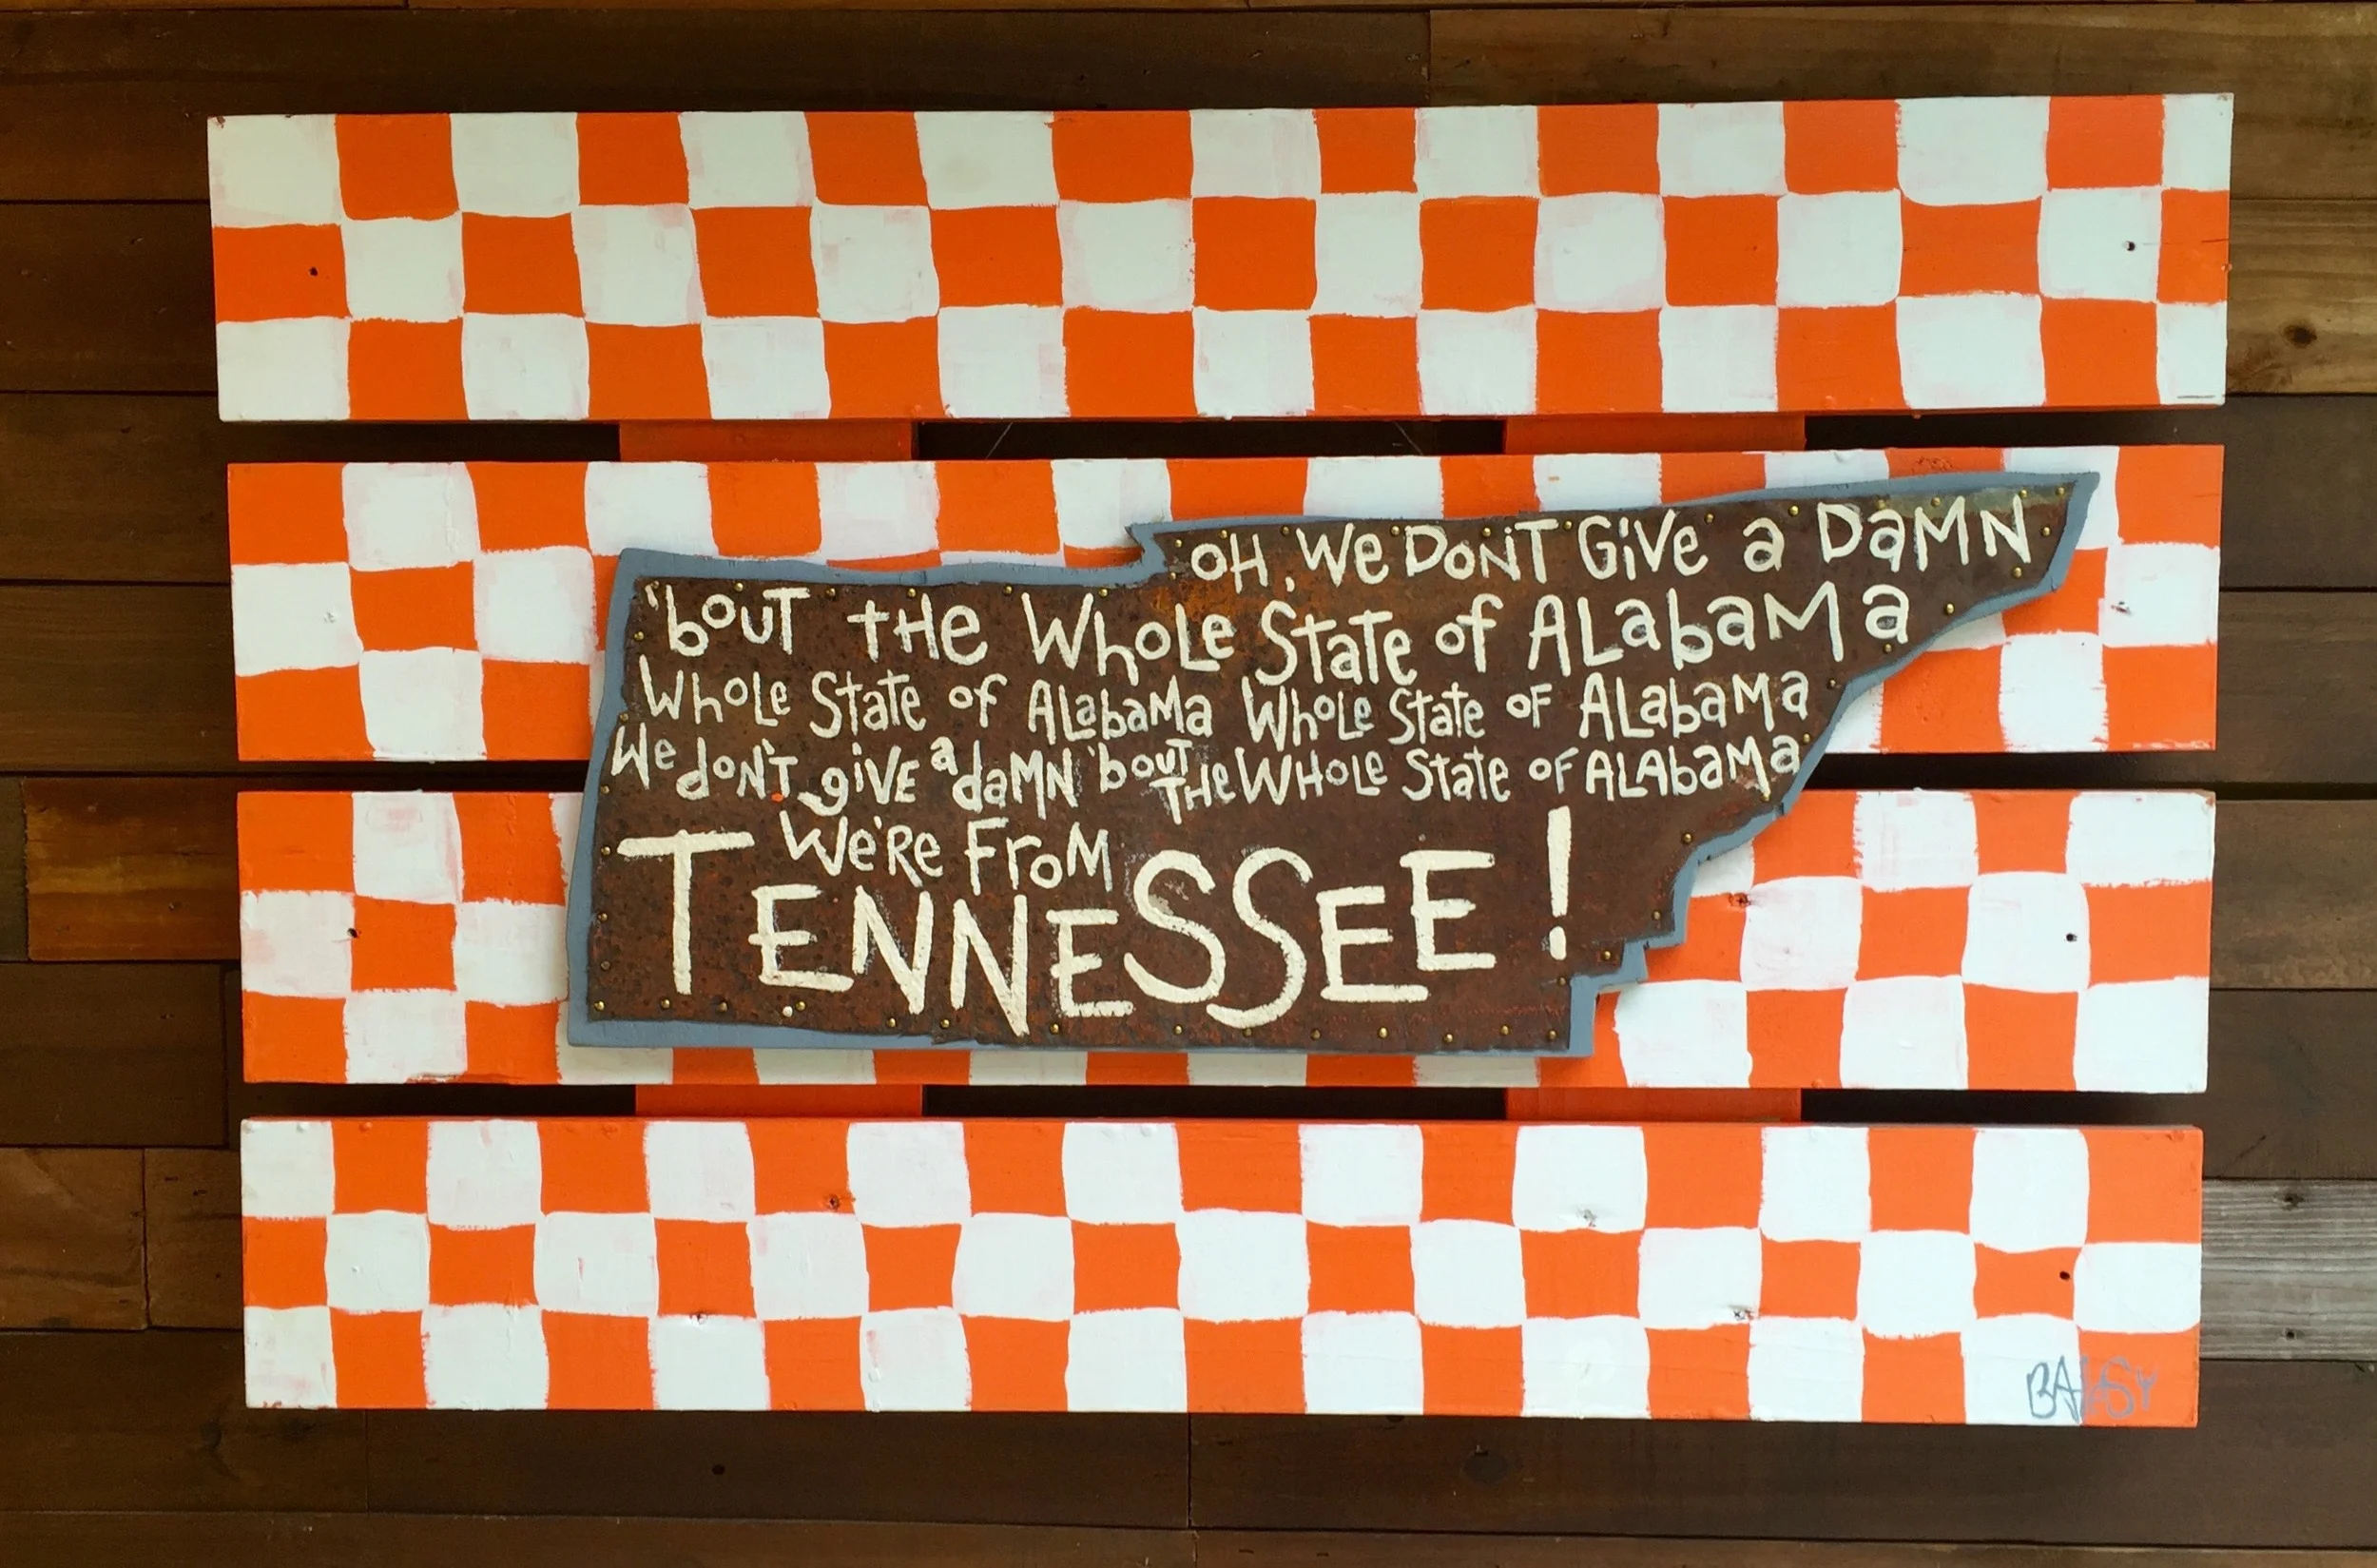 OH, We DoNT GiVe a DaMN
'boUT tHe WhoLe State of ALabaMa
WhoLe State of ALabaMa WhoLe State oF ALabaMa
We doN'T giVE a daMN 'boUT THe WHoLe State oF ALAbaMa
We'Re FroM
TENNESSEE!
BALSY